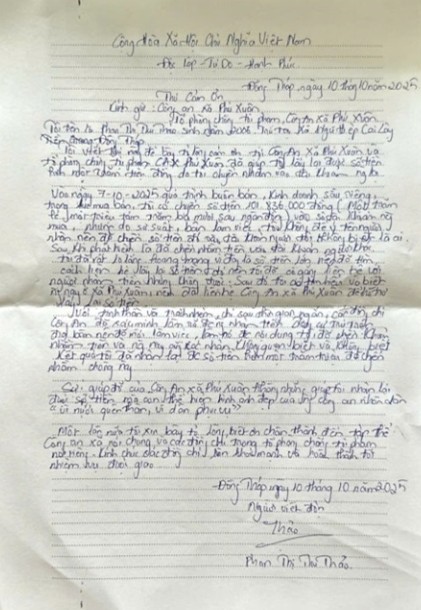 Cộng Hòa Xã Hội Chủ Nghĩa Việt Nam
Độc lập - Tự Do - Hạnh Phúc
Đồng Tháp, ngày 10 tháng 10 năm 2025
Thư Cảm Ơn
Kính gửi: Công an xã Phú Xuân
Tổ phòng chống tội phạm, Công An Xã Phú Xuân
Tôi tên là Phan Thị Thu Thảo sinh năm Trú tại xã Ngũ Hiệp Cai Lậy
Tiền Giang Đồng Tháp
Tôi viết thư này để bày tỏ lòng cảm ơn từ Công An Xã Phú Xuân và
tổ phòng chống tội phạm CAX Phú Xuân đã giúp tôi lấy lại được số tiền
hơn một trăm triệu đồng do tôi chuyển nhầm vào
Vào ngày 7-10-2025 quá trình buôn bán, kinh doanh sầu riêng,
trong lúc mua bán, tôi có chuyển số tiền 101.836.000 đồng (Một trăm
lẻ một triệu tám trăm ba mươi sáu ngàn đồng) vào
mua, nhưng do sơ suất, bận làm việc, tôi không để ý tên người
nhận nên đã chuyển số tiền đó
Sau khi phát hiện là đã chuyển nhầm tiền vào tài khoản người khác
tôi đã rất lo lắng, hoang mang vì đây là số tiền lớn nên đã tìm
cách liên hệ lấy lại số tiền đó nên tôi đã cố gắng liên hệ với
người nhận tiền nhưng không được. Sau đó tôi có tìm hiểu và biết
người ở xã Phú Xuân, nên đã liên hệ Công An xã Phú Xuân để hỗ trợ
lấy lại số tiền.
Với tinh thần và trách nhiệm, chỉ sau thời gian ngắn, các đồng chí
Công An đã xác minh làm rõ đúng nhầm tiền
địa bàn nên đã mời làm việc, làm rõ nội dung tôi đã chuyển khoản
nhầm tiền và này xác nhận
Kết quả tôi đã nhận lại đủ số tiền hơn một trăm triệu đã chuyển
nhầm
Sự giúp đỡ của Công An xã Phú Xuân không những giúp tôi nhận lại
được số tiền mà còn thể hiện hình ảnh đẹp của công an nhân dân
"vì nước quên thân, vì dân phục vụ"
Một lần nữa tôi xin bày tỏ lòng biết ơn chân thành đến tập thể
Công an xã nói chung và các đồng chí trong tổ phòng chống tội phạm
nói riêng. Kính chúc các đồng chí luôn khỏe mạnh và hoàn thành tốt
nhiệm vụ được giao
Đồng Tháp ngày 10 tháng 10 năm 2025
Người viết đơn
Thảo
Phan Thị Thu Thảo.